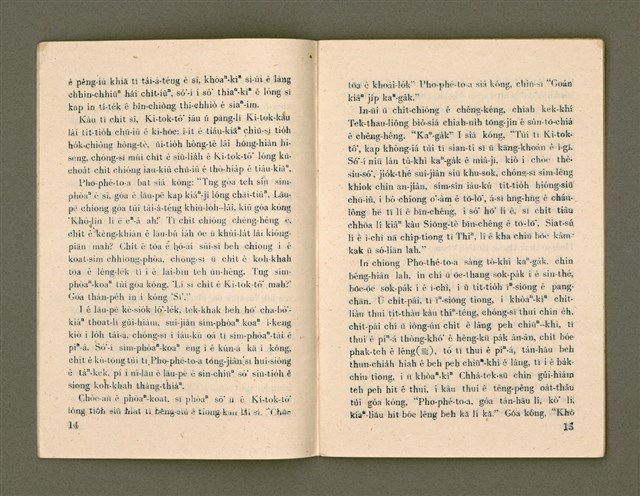 ê pêng-iú khiā tī tâi-á-téng ê sî, khòaⁿ-kìⁿ sì-ûi ê lâng
chhin-chhiūⁿ hái chit-iūⁿ, só͘-í i só͘ thiaⁿ-kìⁿ ê lóng sī
kap in tí-te̍k ê bîn-chiòng thí-chhiò ê siaⁿ-im.
Kàu tī chit sî, Ki-tok-tô͘ iáu ū pàng-lī Ki-tok-kàu
lâi tit-tio̍h chū-iû ê ki-hōe: i-it ê tiâu-kiāⁿ chiū-sī tio̍h
ho̍k-chiông hông-tè, ūi-tio̍h hông-tè lâi hông-hiàn hi-
seng, chóng-sī mûi chit ê siū-liâh ê Ki-tok-tô͘ lóng kú-
choa̍t chit chióng iau-kiû chū-iû ê thó-hia̍p ê tiâu-kiāⁿ.
Pho-phé-to-a bat siá kóng: "Tng góa teh siū sím-
phòaⁿ ê sî, góa ê lāu-pē kap kiáⁿ-jî lóng chāi-tiûⁿ. Lāu-
pē chiong góa túi tâi-á-téng khiú-lo̍h-lâi, kiû góa kóng
'Khó-lîn lí ê ⁿ-á ah!' Tī chit chióng chêng-hêng ê,
chit ê kéng-khiàn ê lāu-bú iáh ōe ū khùi-la̍t lâi kióng-
piān mah? Chit ê tòa ê hó-ài sùi-sî beh chiong i ê
koat-sim chhiong-phòa, chóng-sī ū chit ê koh-khah
tōa ê lêng-le̍k tī i ê lāi-bīn teh ūn-hêng. Tng sím-
phòaⁿ-koaⁿ tùi góa kóng, 'Lí sī chit ê Ki-tok-tô͘ mah?'
Góa thán-pe̍h ìn i kóng 'Sī'."
I ê lāu-pē kè-sio̍k lō͘-le̍k, tek-khak beh hō͘ cha-bó͘-
kiáⁿ thoat-lī gûi-hiám, sui-jiân sím-phòaⁿ-koaⁿ i-keng
kiò i lo̍h tâi-á, chóng-sī i iáu-kú oá tī sím-phòaⁿ-tâi ê
piⁿ-á. Só͘-í sím-phòaⁿ-koaⁿ eng i ê kún-á kā i kòng,
chit ê kú-tong tùi tī Pho-phé-to-a tông-jiânⁿ sī hui-siông
ê táⁿ-kek, pí i ní-lāu ê lāu-pē ê sin-chiūⁿ só͘ siū-tio̍h ê
siong koh-khah thàng-thiàⁿ.
Chòe-āu ê phòaⁿ-koat, sī phòaⁿ só͘ ū ê Ki-tok-tô͘
lóng tio̍h siū hiat tī bêng-siū ê tiong-kan lâi sí. "Chāe
14
tòa ê khoài-lo̍k" Pho-phé-to-a siá kóng, chiū-sī "Goán
kiâⁿ ji̍p kaⁿ-ga̍k."
In-ūi ū chit-chióng ê chêng-kéng, chiah kek-khí
Tek-thau-liông biô-siá chiah-nih tōng-jîn ê sûn-tō-chiá
ê chêng-hêng. "Kaⁿ-ga̍k" I siá kóng, "Tùi tī Ki-tok-
tô͘, kap khōng-iá tùi tī sian-ti sī ū kāng-khoán ê i-gī.
Só͘-í nīu lán tû-khì kaⁿ-ga̍k ê miâ-jī, kiò i chòe thè-
siu-só͘, jio̍k-thé sui-jiân siū khu-sok, chóng-sī sim-lêng
khiok chin an-jiân, sim-sîn iáu-kú tit-tio̍h hióng-siū
chū-iû, i bô chiong o͘-àm ê tō-lō͘, á-sī hng-hn̂g ê cháu-
lông hē tī lí ê bīn-chêng, i só͘ hō͘ lí ê, sī chit tiâu
chhōa lí kiâⁿ kàu Siōng-tè bīn-chêng ê tō-lō͘. Siat-sú
lí ê i-chì nā chip-tiong tī Thiⁿ, lí ê kha chiū bōe kám-
kak ū só͘-liân lah."
In chiong Pho-thé-to-a sàng tò-khì kaⁿ-ga̍k, chin
bêng-hián lah, in chí ū ōe-thang sok-pa̍k i ê sin-thé,
bōe-ōe sok-pa̍k i ê i-chì, i ū tit-tio̍h īⁿ-siōng ê pang-
chān. Ū chi̍t-pái, tī īⁿ-siōng tiong, i khòaⁿ-kìⁿ chi̍t-
liâu thui tit-thàn kàu thiⁿ-téng, chóng-sī thui chin e̍h,
chi̍t-pái chí ū iông-ún chi̍t ê lâng peh chiūⁿ-khì, tī
thui ê piⁿ-á thòng-khó͘ ê hêng-kū pâk án-ân, chi̍t bóe
phak-teh ê lêng(龍), tó tī thui ê piⁿ-á, tán-hāu beh
thun-chia̍h hiah ê beh peh chiūⁿ-khì ê lâng, tī i ê ba̍k-
chiu tiong, i ū khòaⁿ-kìⁿ Chhá-tek-sū chin gûi-hiám
teh peh hit ê thui, i kàu thui ê téng-pêng oa̍t-thâu
tùi góa kóng, "Pho-phé-to-a, góa tán-hāu lí, kó͘ lí,
kiaⁿ-liâu hit-bóe lêng beh kā lí kā." Góa kóng, "Khò
15